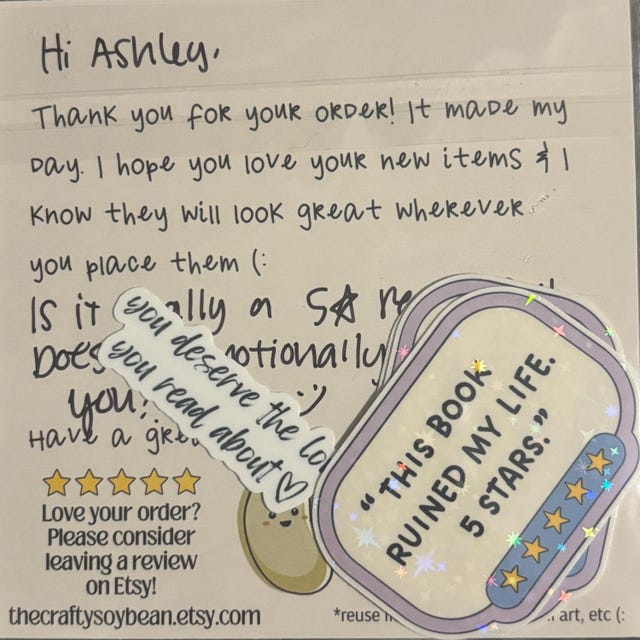 Hi Ashley,
Thank you for your order! It made my
day. I hope you love your new items & I
know they will look great wherever
you place them (:
Is it a 5☆
you?
Have a
Love your order?
Please consider
leaving a review
on Etsy!
thecraftysoybean.etsy.com
*reuse art, etc (:
you deserve the
you read about!
"THIS BOOK
RUINED MY LIFE.
5 STARS."